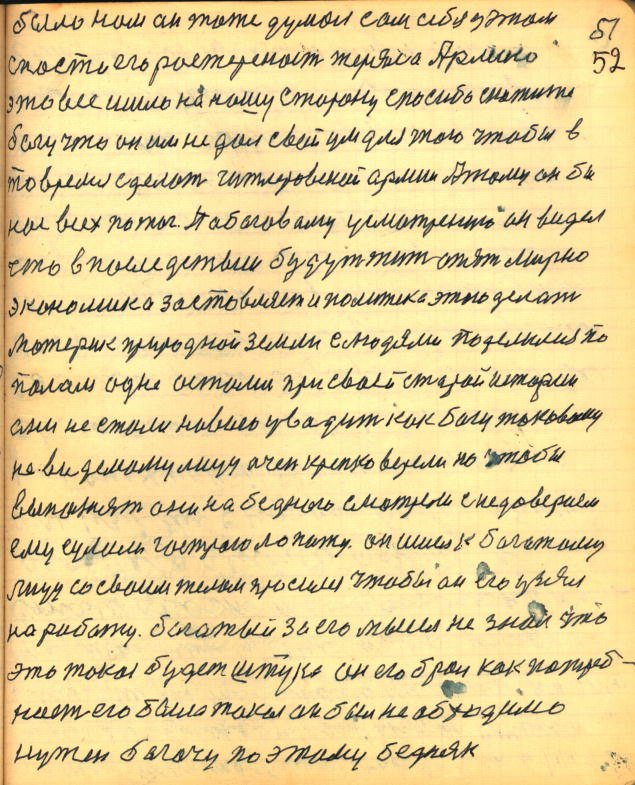 было нам он тоже думал сам себя в этом
51
спасти его растереност терялса Армию
52
это все ишло на нашу сторону спасибо скажите
богу что он им не дал свой ум для того чтобы в
то время сделат гитлеровской армии Атаму он бы
нас всех потог. Па багавому усмотрению он видел
что в последствии будут жит опят мирно
экономика заставляет и политика этого делат
материк природной земли с людями поделился по
полам одне остами при своей старой истории
они не стали новаго увадит как богу таковому
не виде мому лицу очен крепко верели но чтобы
выпонят они на бедного смотрели с недоверием
ему сулили гострого лопату. он ишел к богатому
лицу со своим телом просился чтобы он его узял
на работу. богатый за его мысел не знал что
это такая будет штука он его брал как потреб-
ност его была такая он был необходимо
нужен богачу поэтому бедняк